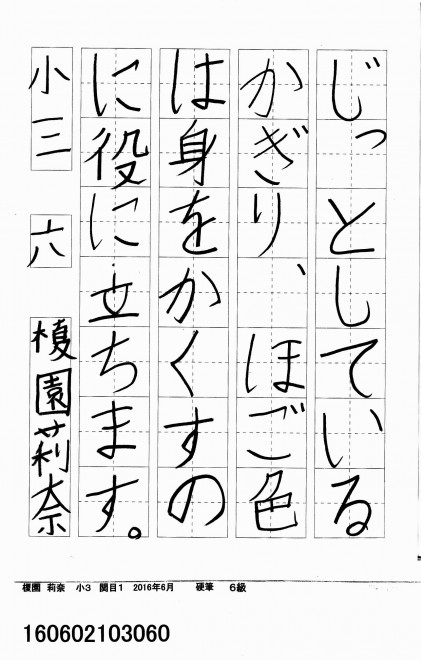 じっとしている
かぎり、ほご色
は身をかくすの
に役に立ちます。
小三 六 榎園莉奈
榎園 莉奈 小3 関目1 2016年6月 硬筆 6級
160602103060